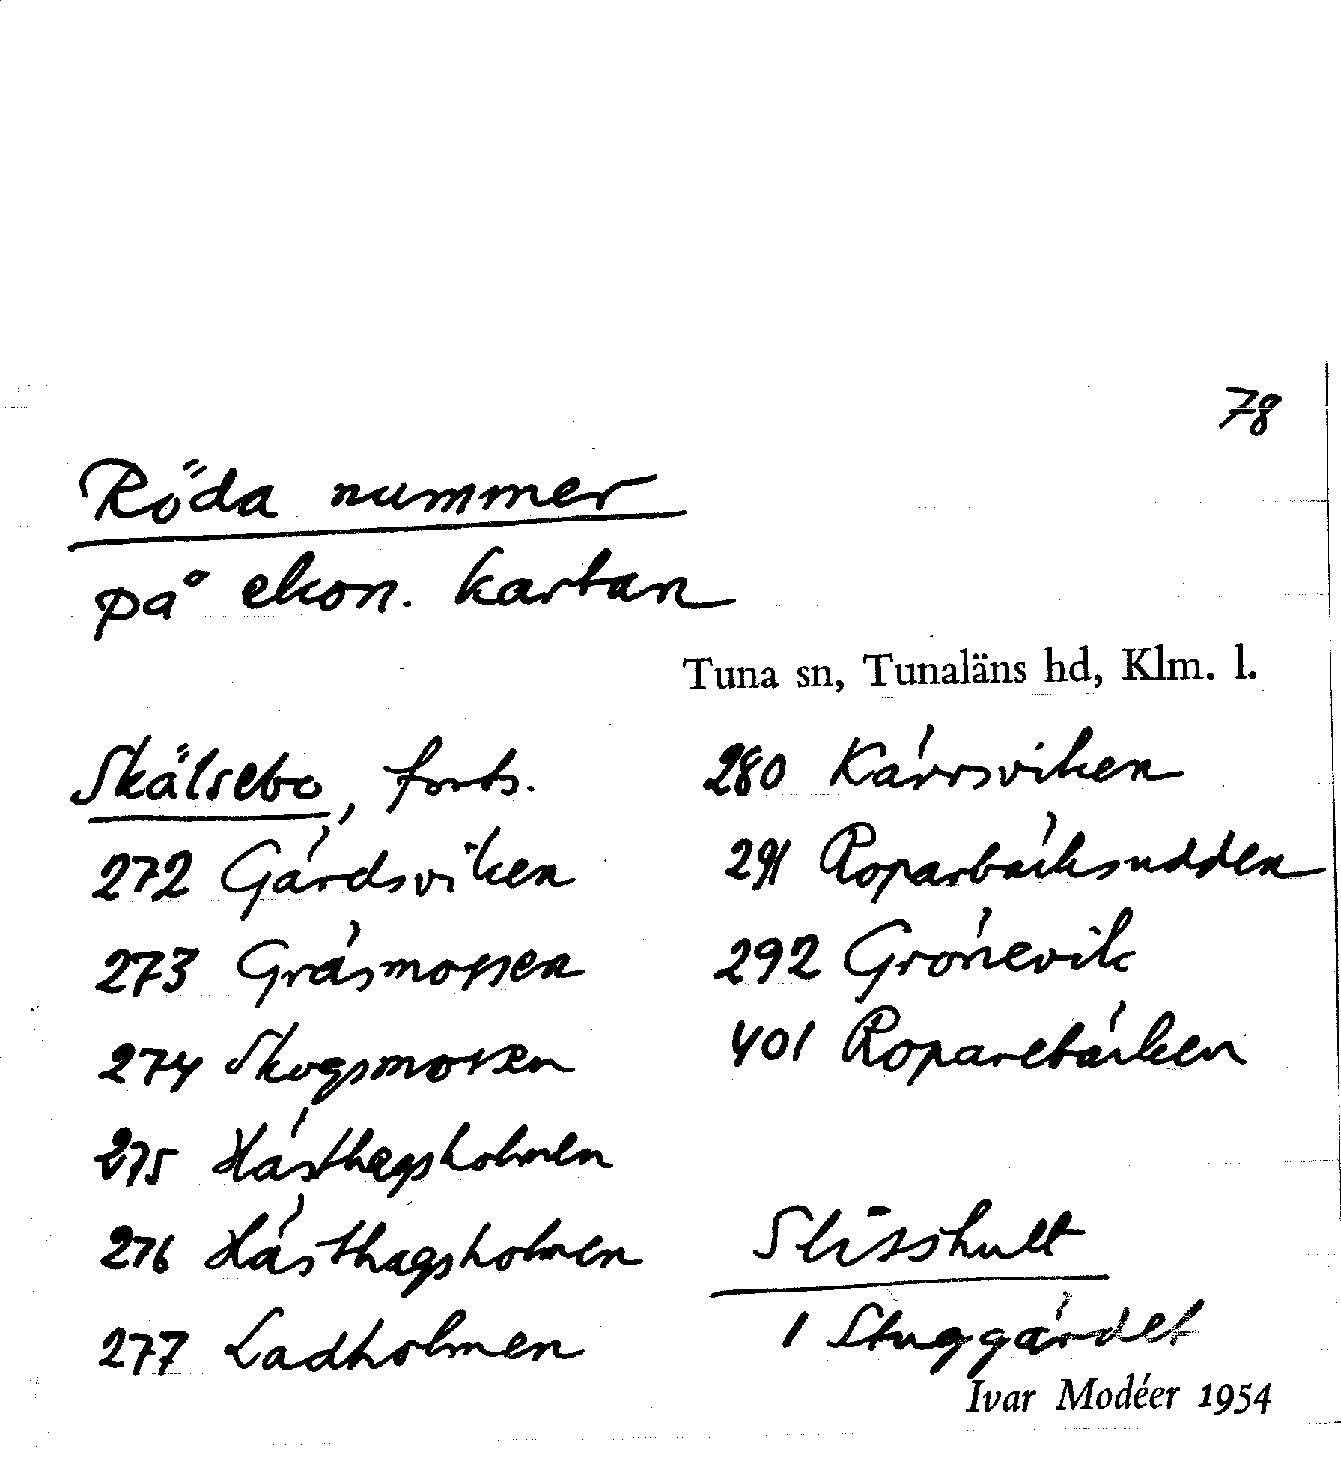 78
Röda nummer
på ekon. kartan
Tuna sn, Tunaläns hd, Klm. l.
Skälsebo, forts.
272 Gärdsviken
273 Gräsmossen
274 Skogsmossen
275 Hästhagsholmen
276 Hästhagsholmen
277 Ladholmen
280 Kärrsviken
291 Roparbäcksudden
292 Grönevik
401 Roparebäcken
Slisshult
1 Stuggärdet
Ivar Modéer 1954